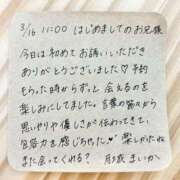 3/16 11:00 はじめましてのお兄様
今日は初めてお誘いいただき
ありがとうございました♡ 予約
もらった時からずっと会えるのを
楽しみにしてました。言葉の節々から
思いやりや優しさが伝わってきて、
包容力を感じちゃった♥ 楽しかったね
また会ってくれる？
まいか